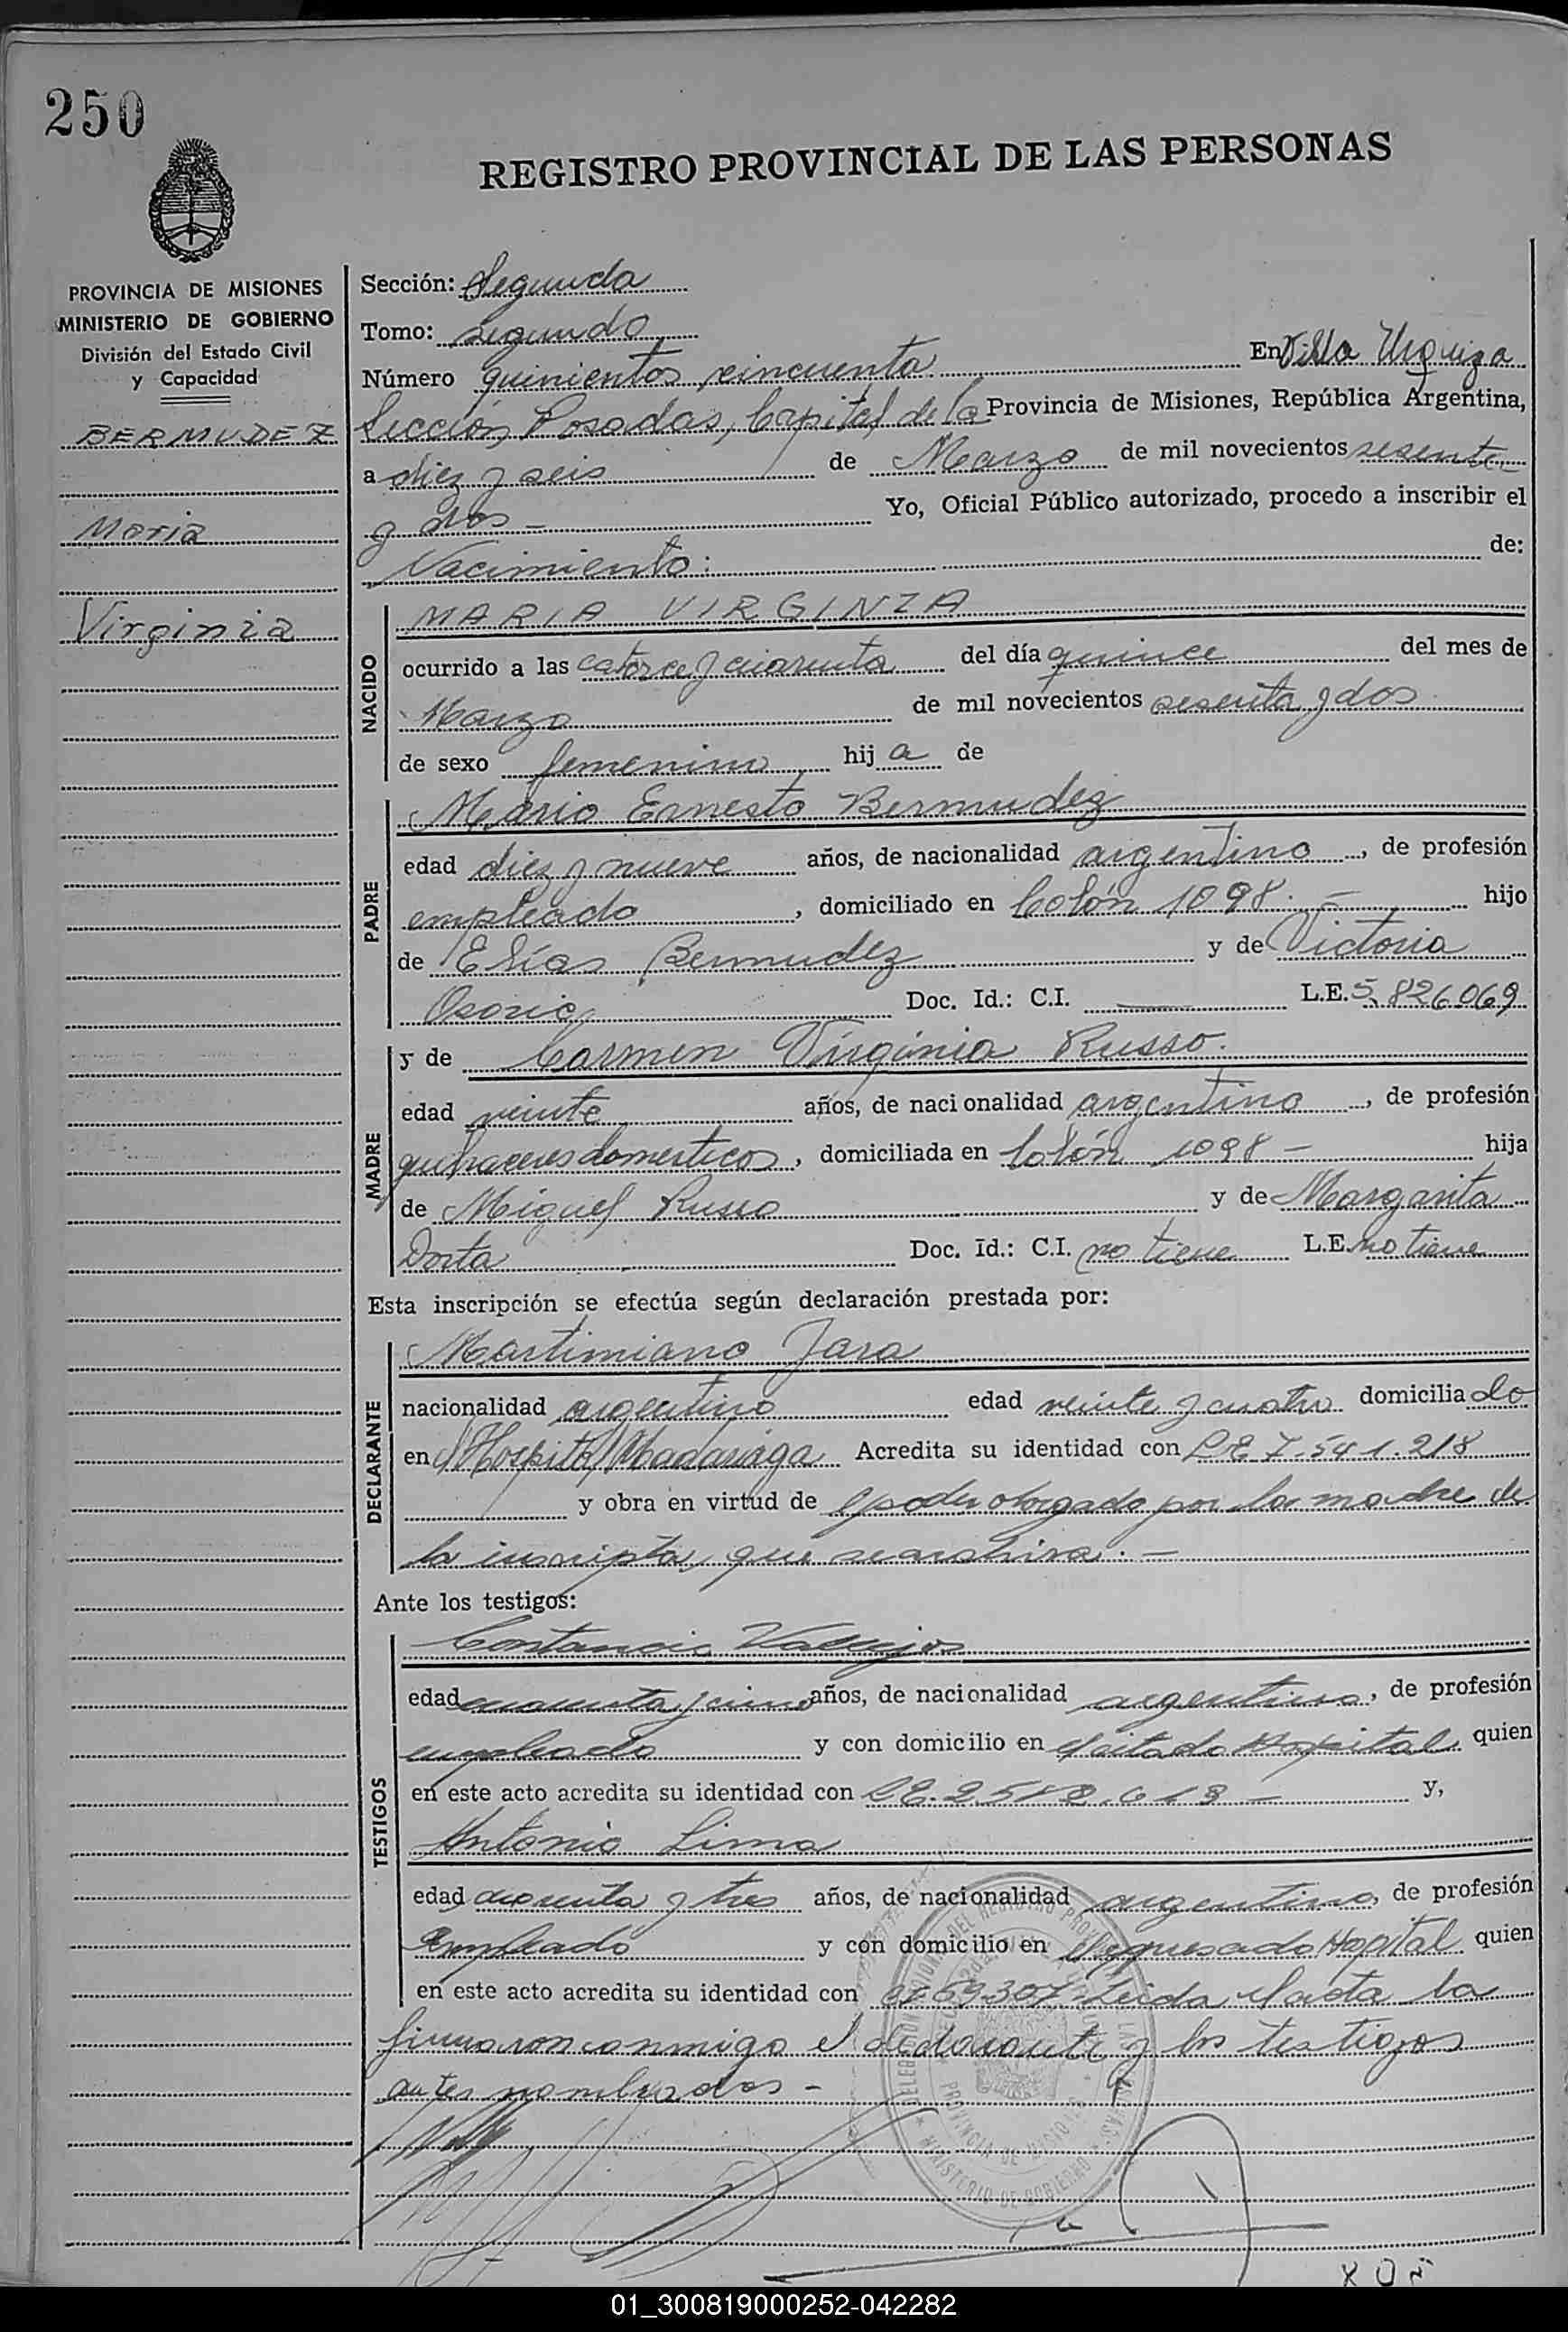 250
REGISTRO PROVINCIAL DE LAS PERSONAS
PROVINCIA DE MISIONES
MINISTERIO DE GOBIERNO
División del Estado Civil
y Capacidad
BERMUDEZ
Maria
Virginia
Sección: Segunda
Tomo: segundo
Número quinientos cincuenta En Villa Urquiza
Sección, Posadas, Capital de la Provincia de Misiones, República Argentina,
a diez y seis de Marzo de mil novecientos sesenta
y dos - Yo, Oficial Público autorizado, procedo a inscribir el
Nacimiento: de:
NACIDO
MARIA VIRGINIA
ocurrido a las catorce y cuarenta del día quince del mes de
Marzo de mil novecientos sesenta y dos
de sexo femenino hija de
PADRE
Mario Ernesto Bermudez
edad diez y nueve años, de nacionalidad argentino, de profesión
empleado, domiciliado en Colón 1098. - hijo
de Elías Bermudez y de Victoria
Osorio Doc. Id.: C.I. — L.E. 5.826069
MADRE
y de Carmen Virginia Russo.
edad veinte años, de nacionalidad argentina, de profesión
quehaceres domesticos, domiciliada en Colón 1098 - hija
de Miguel Russo y de Margarita
Dorta Doc. Id.: C.I. no tiene L.E. no tiene
Esta inscripción se efectúa según declaración prestada por:
DECLARANTE
Martimiano Jara
nacionalidad argentino edad veinte y cuatro domiciliado
en Hospital Madariaga Acredita su identidad con LE 7.541.218
y obra en virtud de poder otorgado por la madre de
la inscripta, que se archiva. -
Ante los testigos:
TESTIGOS
Contancio Vallejos
edad cuarenta y cinco años, de nacionalidad argentino, de profesión
empleado y con domicilio en citado Hospital quien
en este acto acredita su identidad con y,
Antonio Lima
edad cuarenta y tres años, de nacionalidad argentino, de profesión
Empleado y con domicilio en expresado Hospital quien
en este acto acredita su identidad con Leida el acta la
firmaron conmigo el declarante y los testigos
antes nombrados -
01_300819000252-042282